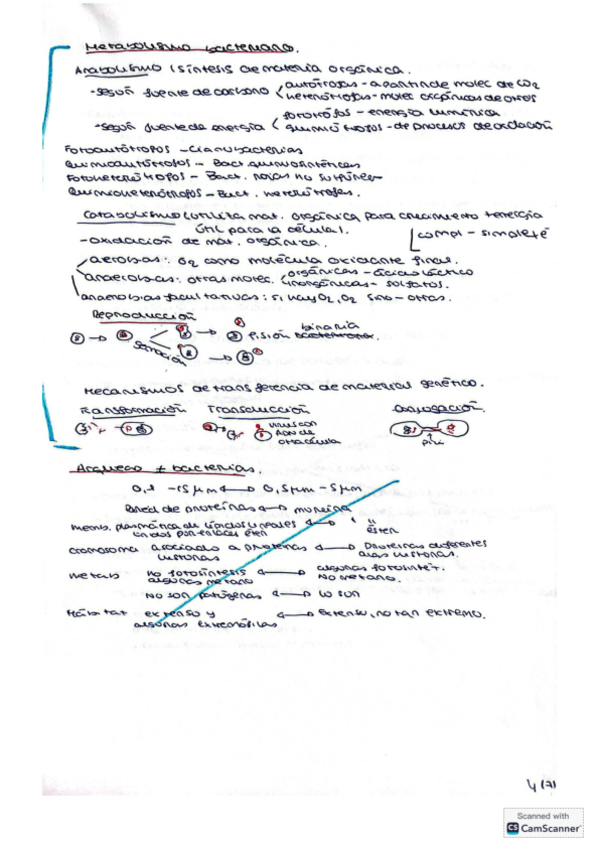 Metabolismo bacteriano.
Anabolismo (síntesis de materia orgánica.
-según fuente de carbono autótrofas - a partir de molec de CO2
heterótrofas - molec orgánicas de otros
fototrófos - energía lumínica
-según fuente de energía quimiótrofos - de procesos de oxidación
Fotoautótrofos - cianobacterias
Quimioautótrofos - Bact. quimiosintéticas
Fotoheterótrofos - Bact. rojas no sulfúreas
Quimioheterótrofos - Bact. heterótrofas.
Catabolismo (utiliza mat. orgánica para crecimiento + energía
útil para la célula).
-oxidación de mat. orgánica.
compl - simple +é
aerobias: O2 como molécula oxidante final.
anaerobias: otras molec. orgánicas - ácido láctico
inorgánicas - sulfatos.
anaerobias facultativas: si hay O2, O2 sino - otras.
Reproducción
fisión binaria
Mecanismos de transferencia de material genético.
Transformación Transducción Conjugación
virus con
ADN de
otra célula
pili
Arqueas ≠ bacterias.
0,1 - 15 μm ↔ 0,5 μm - 5 μm
Pared de proteínas ↔ mureína
memb. plasmática de lípidos lineales ↔ " "
unidos por enlaces éter éster
cromosoma asociado a proteínas ↔ Proteínas diferentes
histonas a las histonas.
metab no fotosíntesis ↔ algunas fotosintét.
algunas metano No metano.
No son patógenas ↔ lo son
Hábitat extenso y ↔ extenso, no tan extremo.
algunas extremófilas
4 (7)
Scanned with
CS CamScanner